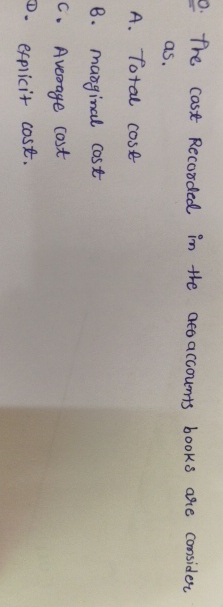 Q. The cost Recorded in the accounts books are consider
as.
A. Total cost
B. marginal cost
C. Average cost
D. explicit cost.